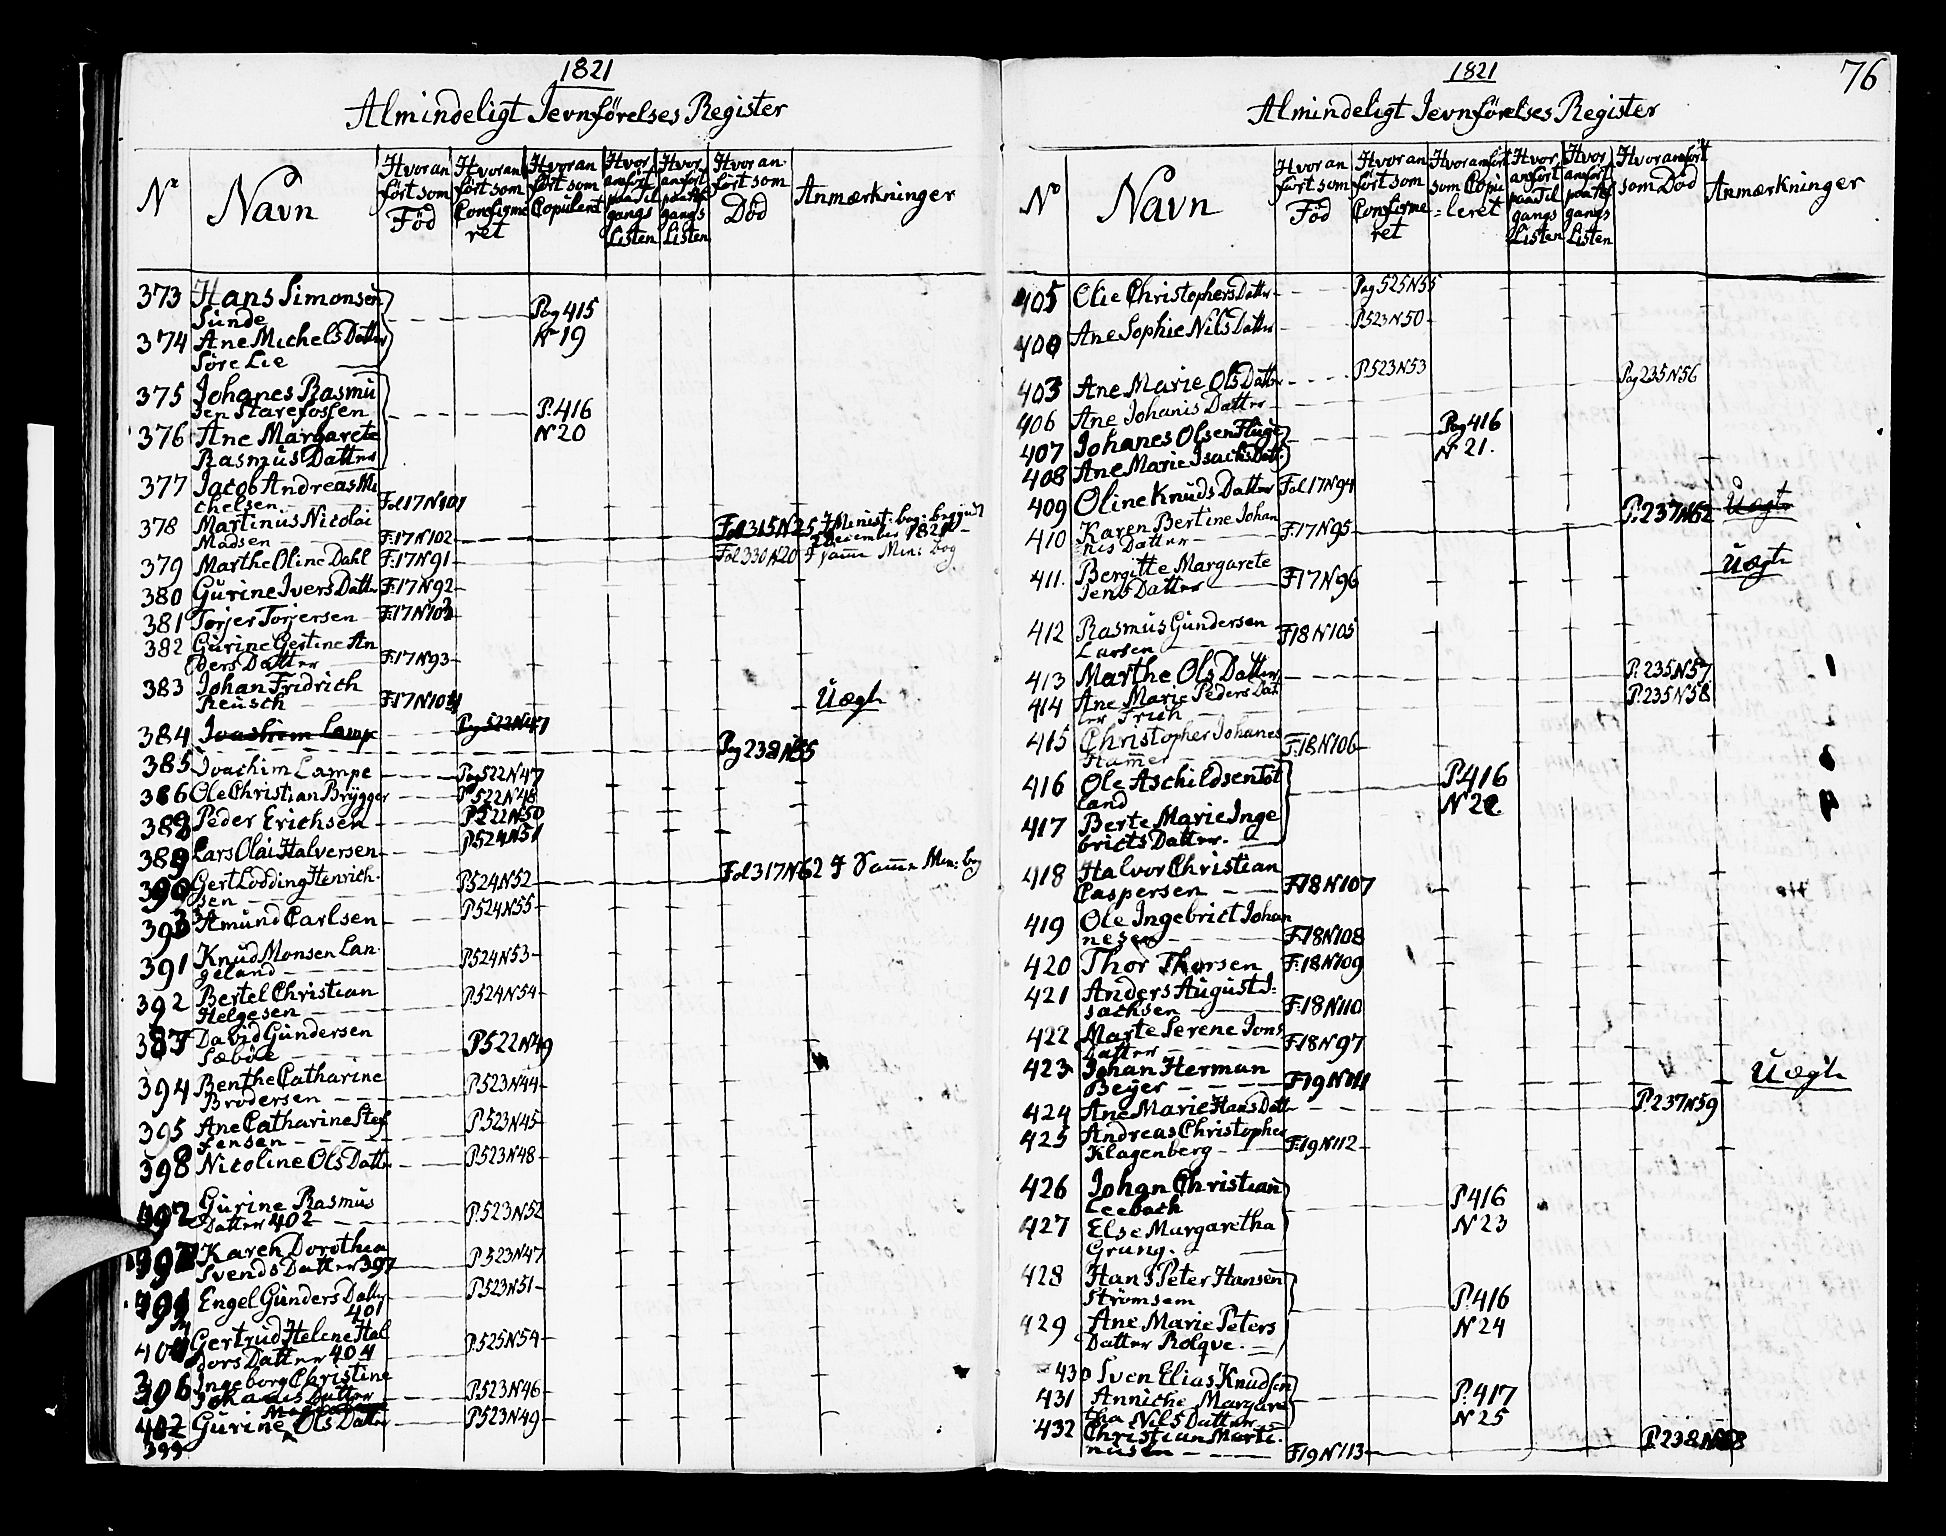 1821
Almindeligt Jevnførelses Register
No Navn
Hvor anført som Fød
Hvor anført som Confirmeret
Hvor anført som Copuleret
Hvor anført paa Tilgangs Listen
Hvor anført paa Afgangs Listen
Hvor anført som Død
Anmærkninger
373 Hans Simonsen
Sunde Pag 415
374 Ane Michels Datter No 19
Søre Lie
375 Johanes Rasmu
sen Starefossen P. 416
376 Ane Margarete N 20
Rasmus Datter
377 Jacob Andreas Mi
chelsen Fol 17 N 101
378 Martinus Nicolai Fol 315 N 25 I Minist: bog: begynd
Madsen F. 17 N 102 December 1820
379 Marthe Oline Dahl F. 17 N 91 Fol 330 N 20 I samme Min: bog
380 Gurine Ivers Datter F. 17 N 92
381 Torjer Torjersen F. 17 N 103
382 Gurine Gertine An
ders Datter F. 17 N 93
383 Johan Fridrich
Reusch F. 17 N 104 Uægte
384 Joachim Lamp Pag 522 N 47
385 Joachim Lampe Pag 522 N 47 Pag 238 N 55
386 Ole Christian Brygger P 522 N 48
388 Peder Erichsen P. 522 N 50
389 Lars Olai Halversen P. 524 N 51
390 Gert Lodding Henrich
sen P. 524 N 52 Fol 317 N 62 I Samme Min: bog
393 Amund Carlsen P. 524 N 55
391 Knud Monsen Lan
geland P. 524 N 53
392 Bertel Christian
Helgesen P. 524 N 54
387 David Gundersen
Sæbøe P. 522 N 49
394 Benthe Catharine
Brodersen P. 523 N 44
395 Ane Catharine Stef
fensen P. 523 N 45
398 Nicoline Ols Datter P. 523 N 48
Gurine Rasmus
Datter 402 P. 523 N 52
Karen Dorothea
Svends Datter 397 P. 523 N 47
Engel Gunders Datter P. 523 N 51
401
Gertrud Helene Hal
dors Datter 404 P. 525 N 54
396 Ingeborg Christine
Datter P. 523 N 46
402 Gurine Ols Datter P. 523 N 49
399
1821
76
Almindeligt Jevnførelses Register
No Navn
Hvor anført som Fød
Hvor anført som Confirmeret
Hvor anført som Copu=leret
Hvor anført paa Til gangs Listen
Hvor anført paa Af gangs Listen
Hvor anført som Død
Anmærkninger
405 Olie Christophers Datter Pag 525 N 55
400 Ane Sophie Nils Datter P. 523 N 50
403 Ane Marie Ols Datter P. 523 N 53
406 Ane Johanis Datter Pag 235 N 56
407 Johanes Olsen Fluge Pag 416
408 Ane Marie Isachs Datt: N 21.
409 Oline Knuds Datter Fol. 17 N 94
410 Karen Bertine Johan
nis Datter F. 17 N 95 P. 237 N 62 Uægte
411. Bergitte Margarete
Jens Datter F. 17 N 96 Uægte
412 Rasmus Gundersen
Larsen F. 18 N 105
413 Marthe Ols Datter P. 235 N 57
414 Ane Marie Peders Dat
ter Frich P. 235 N 58
415 Christopher Johanes
Hammer F. 18 N 106
416 Ole Aschildsen Tot
land P. 416
417 Berte Marie Inge N 22
bricts Datter.
418 Halvor Christian
Caspersen F. 18 N 107
419 Ole Ingebrict Johan
nesen F. 18 N 108
420 Thor Thorsen F. 18 N 109
421 Anders August I:
sachsen F. 18 N 110
422 Marte Serene Jons
Datter F. 18 N 97
423 Johan Herman
Beyer F. 19 N 111 Uægte
424 Ane Marie Hans Datt P. 237 N 59
425 Andreas Christopher
Klagenberg F. 19 N 112
426 Johan Christian
Leebach P. 416
427 Else Margaretha N 23
Grung.
428 Hans Peter Hansen
Strømsem P. 416
429 Ane Marie Peters N 24
Datter Rolqve.
430 Sven Elias Knudsen
431 Anniche Margare P. 417
tha Nils Datter N 25
432 Christian Marti
nusen F. 19 N 113 P. 238 N 68